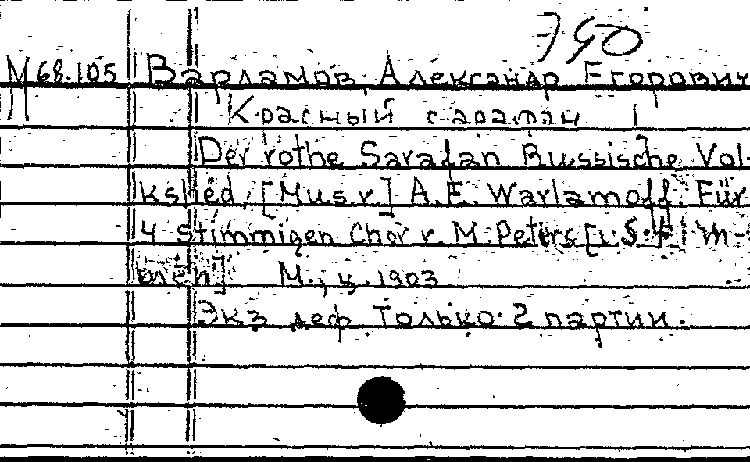 740
М 68.105 Варламов, Александр Егорович
Красный сарафан
Der rothe Sarafan Russische Vol-
kslied. [Mus. v.] A. E. Warlamoff. Für
4 Stimmigen Chor v. M. Peters
M.; ц. 1903
Экз деф Только 2 партии.